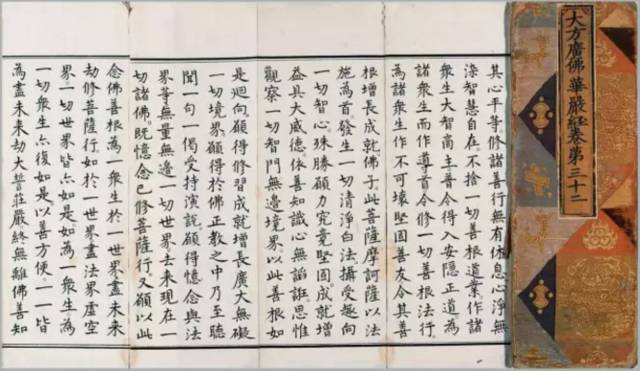 大方廣佛華嚴經卷第三十二
其心平等。修諸善行。無有休息。心淨無
染智慧自在。不捨一切善根道業。作諸
衆生大智商主。普令得入安隱正道。為
諸衆生而作導首。令修一切善根法行。
為諸衆生作不可壞堅固善友。令其善
根增長成就。佛子。此菩薩摩訶薩以法
施為首。發生一切清淨白法。攝受趣向
一切智心。殊勝願力究竟堅固。成就增
益。具大威德。依善知識。心無諂誑。思惟
觀察一切智門無邊境界。以此善根如
是迴向。願得修習成就增長廣大無礙
一切境界。願得於佛正教之中乃至聽
聞一句一偈受持演說。願得憶念與法
界等無量無邊一切世界去來現在一
切諸佛。既憶念已。修菩薩行。又願以此
念佛善根。為一衆生於一世界盡未來
劫修菩薩行。如於一世界。盡法界虛空
界一切世界皆亦如是。如為一衆生。為
一切衆生亦復如是。以善方便。一一皆
為盡未來劫大誓莊嚴。終無離佛善知